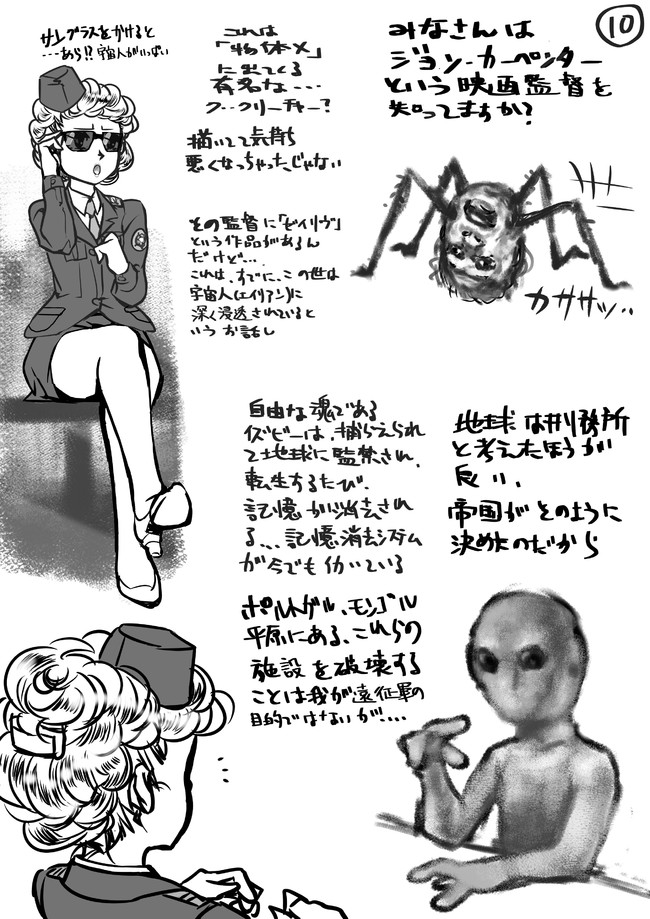 10
みなさんは
ジョン・カーペンター
という映画監督を
知ってますか?
これは
「物体X」
に出てくる
有名な・・・
ク・・クリーチャー?
描いてて気持ち
悪くなっちゃったじゃない
サングラスをかけると
・・・あら!!宇宙人がいっぱい
カササッ・・
その監督に「ゼイリヴ」
という作品があるん
だけど・・・
これは、すでに、この世は
宇宙人(エイリアン)に
深く浸透されていると
いうお話し
地球は刑務所
と考えたほうが
良い、
帝国がそのように
決めたのだから
自由な魂である
イズビーは、捕らえられ
て地球に監禁され、
転生するたび、
記憶が消去され
る、、、記憶消去システム
が今でも働いている
ポルトガル、モンゴル
平原にある、これらの
施設を破壊する
ことは我が遠征軍の
目的ではないが!・・・